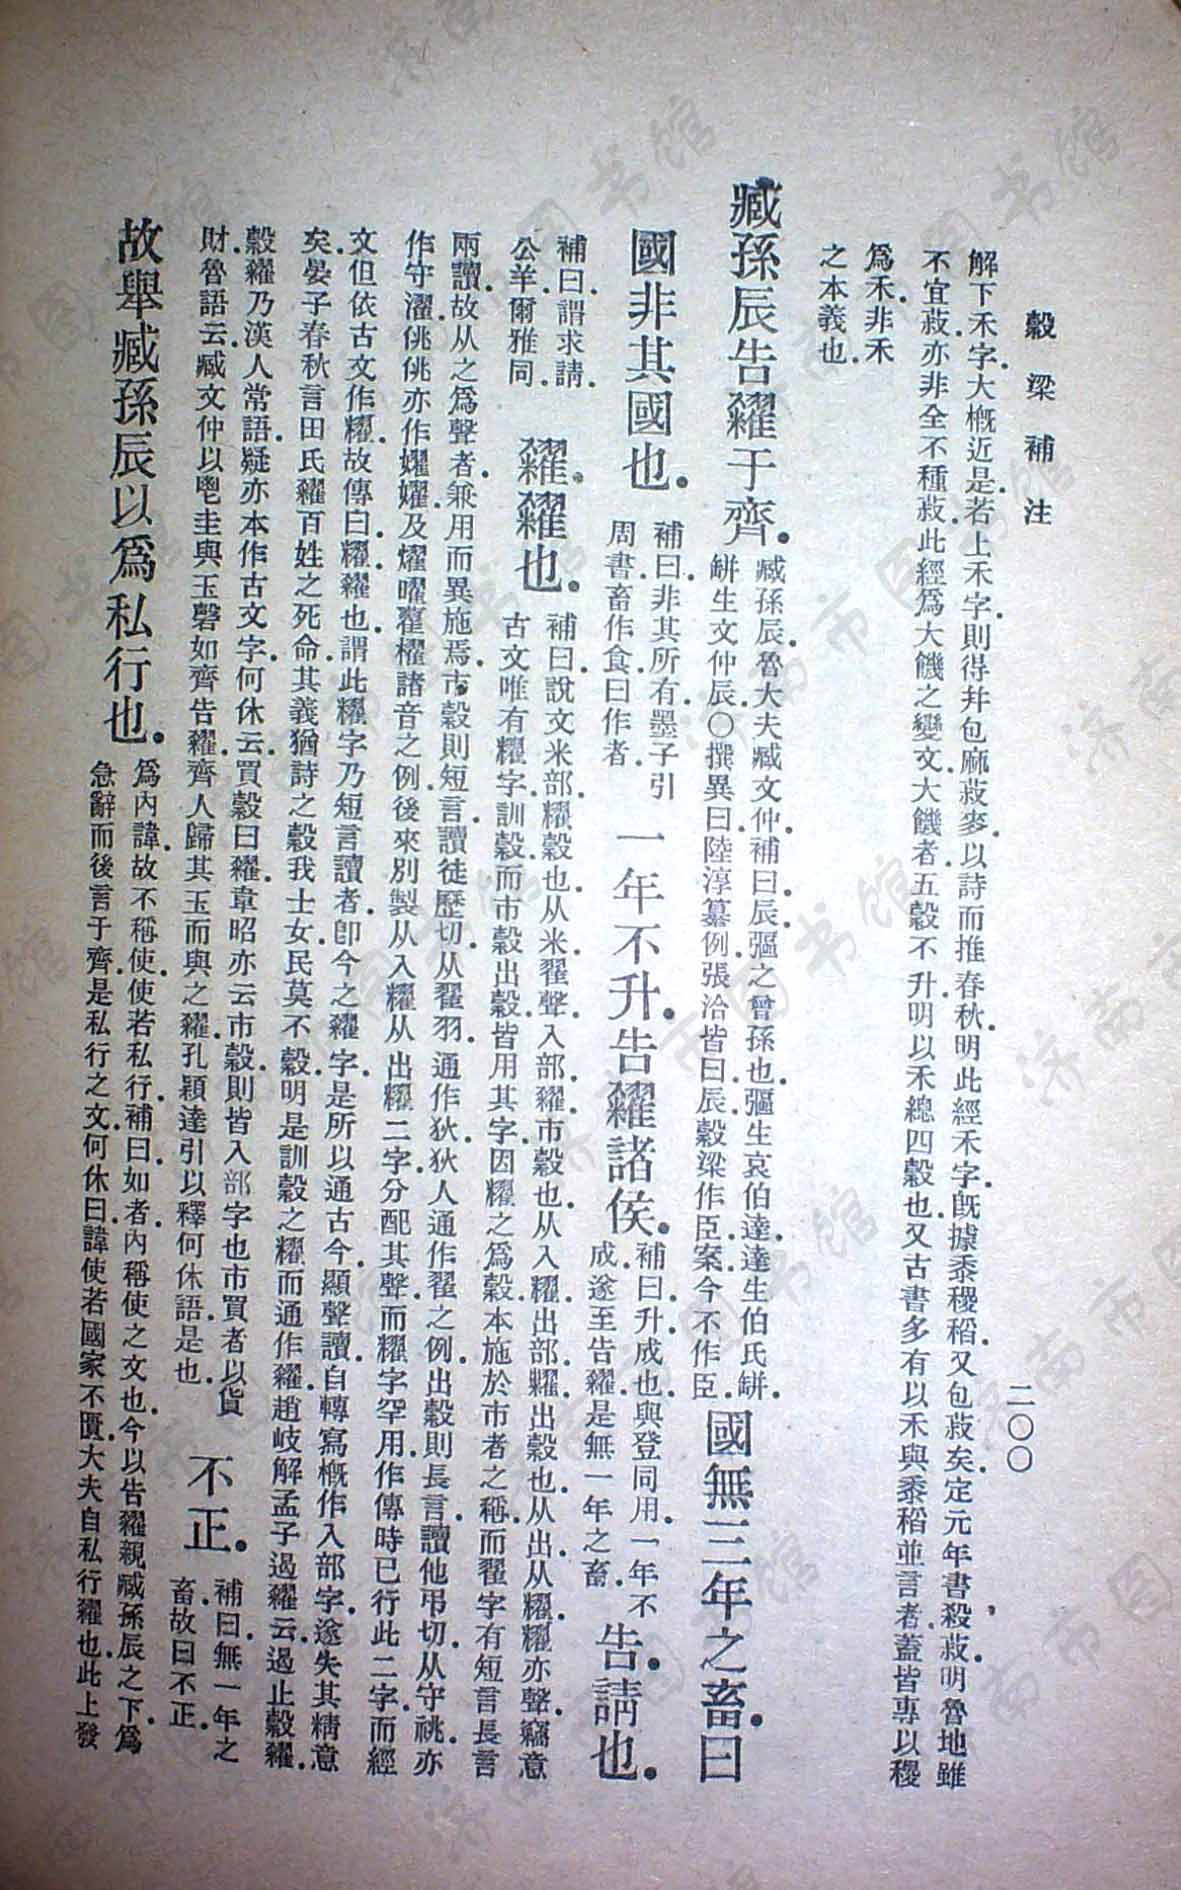 穀梁補注
二〇〇
解下禾字大概近是若上禾字則得幷包麻菽麥以詩而推春秋明此經禾字既據黍稷稻又包菽矣定元年書殺菽明魯地雖
不宜菽亦非全不種菽此經爲大饑之變文大饑者五穀不升明以禾總四穀也又古書多有以禾與黍稻並言者蓋皆專以稷
爲禾非禾
之本義也
臧孫辰告糴于齊
臧孫辰魯大夫臧文仲補曰辰彄之曾孫也彄生哀伯達達生伯氏缾
缾生文仲辰〇撰異曰陸淳纂例張洽皆曰辰穀梁作臣案今不作臣
國無三年之畜曰
國非其國也
補曰非其所有墨子引
周書畜作食曰作者
一年不升告糴諸侯
補曰升成也與登同用一年不
成遂至告糴是無一年之畜
告請也
補曰謂求請
公羊爾雅同
糴糴也
補曰說文米部糶穀也从米翟聲入部糴市穀也从入糶出部糶出穀也从出从糶糶亦聲竊意
古文唯有糶字訓穀而市穀出穀皆用其字因糶之爲穀本施於市者之稱而翟字有短言長言
兩讀故从之爲聲者兼用而異施焉市穀則短言讀徒歷切从翟羽通作狄狄人通作翟之例出穀則長言讀他弔切从守祧亦
作守濯佻佻亦作嬥嬥及燿曜藋櫂諸音之例後來別製从入糶从出糶二字分配其聲而糶字罕用作傳時已行此二字而經
文但依古文作糶故傳曰糶糴也謂此糶字乃短言讀者卽今之糴字是所以通古今顯聲讀自轉寫概作入部字遂失其精意
矣晏子春秋言田氏糴百姓之死命其義猶詩之穀我士女民莫不穀明是訓穀之糶而通作糴趙岐解孟子遏糴云遏止穀糴
穀糴乃漢人常語疑亦本作古文字何休云買穀曰糴韋昭亦云市穀則皆入部字也市買者以貨
財魯語云臧文仲以鬯圭與玉磬如齊告糴齊人歸其玉而與之糴孔穎達引以釋何休語是也
不正
補曰無一年之
畜故曰不正
故舉臧孫辰以爲私行也
爲內諱故不稱使使若私行補曰如者內稱使之文也今以告糴親臧孫辰之下爲
急辭而後言于齊是私行之文何休曰諱使若國家不匱大夫自私行糴也此上發